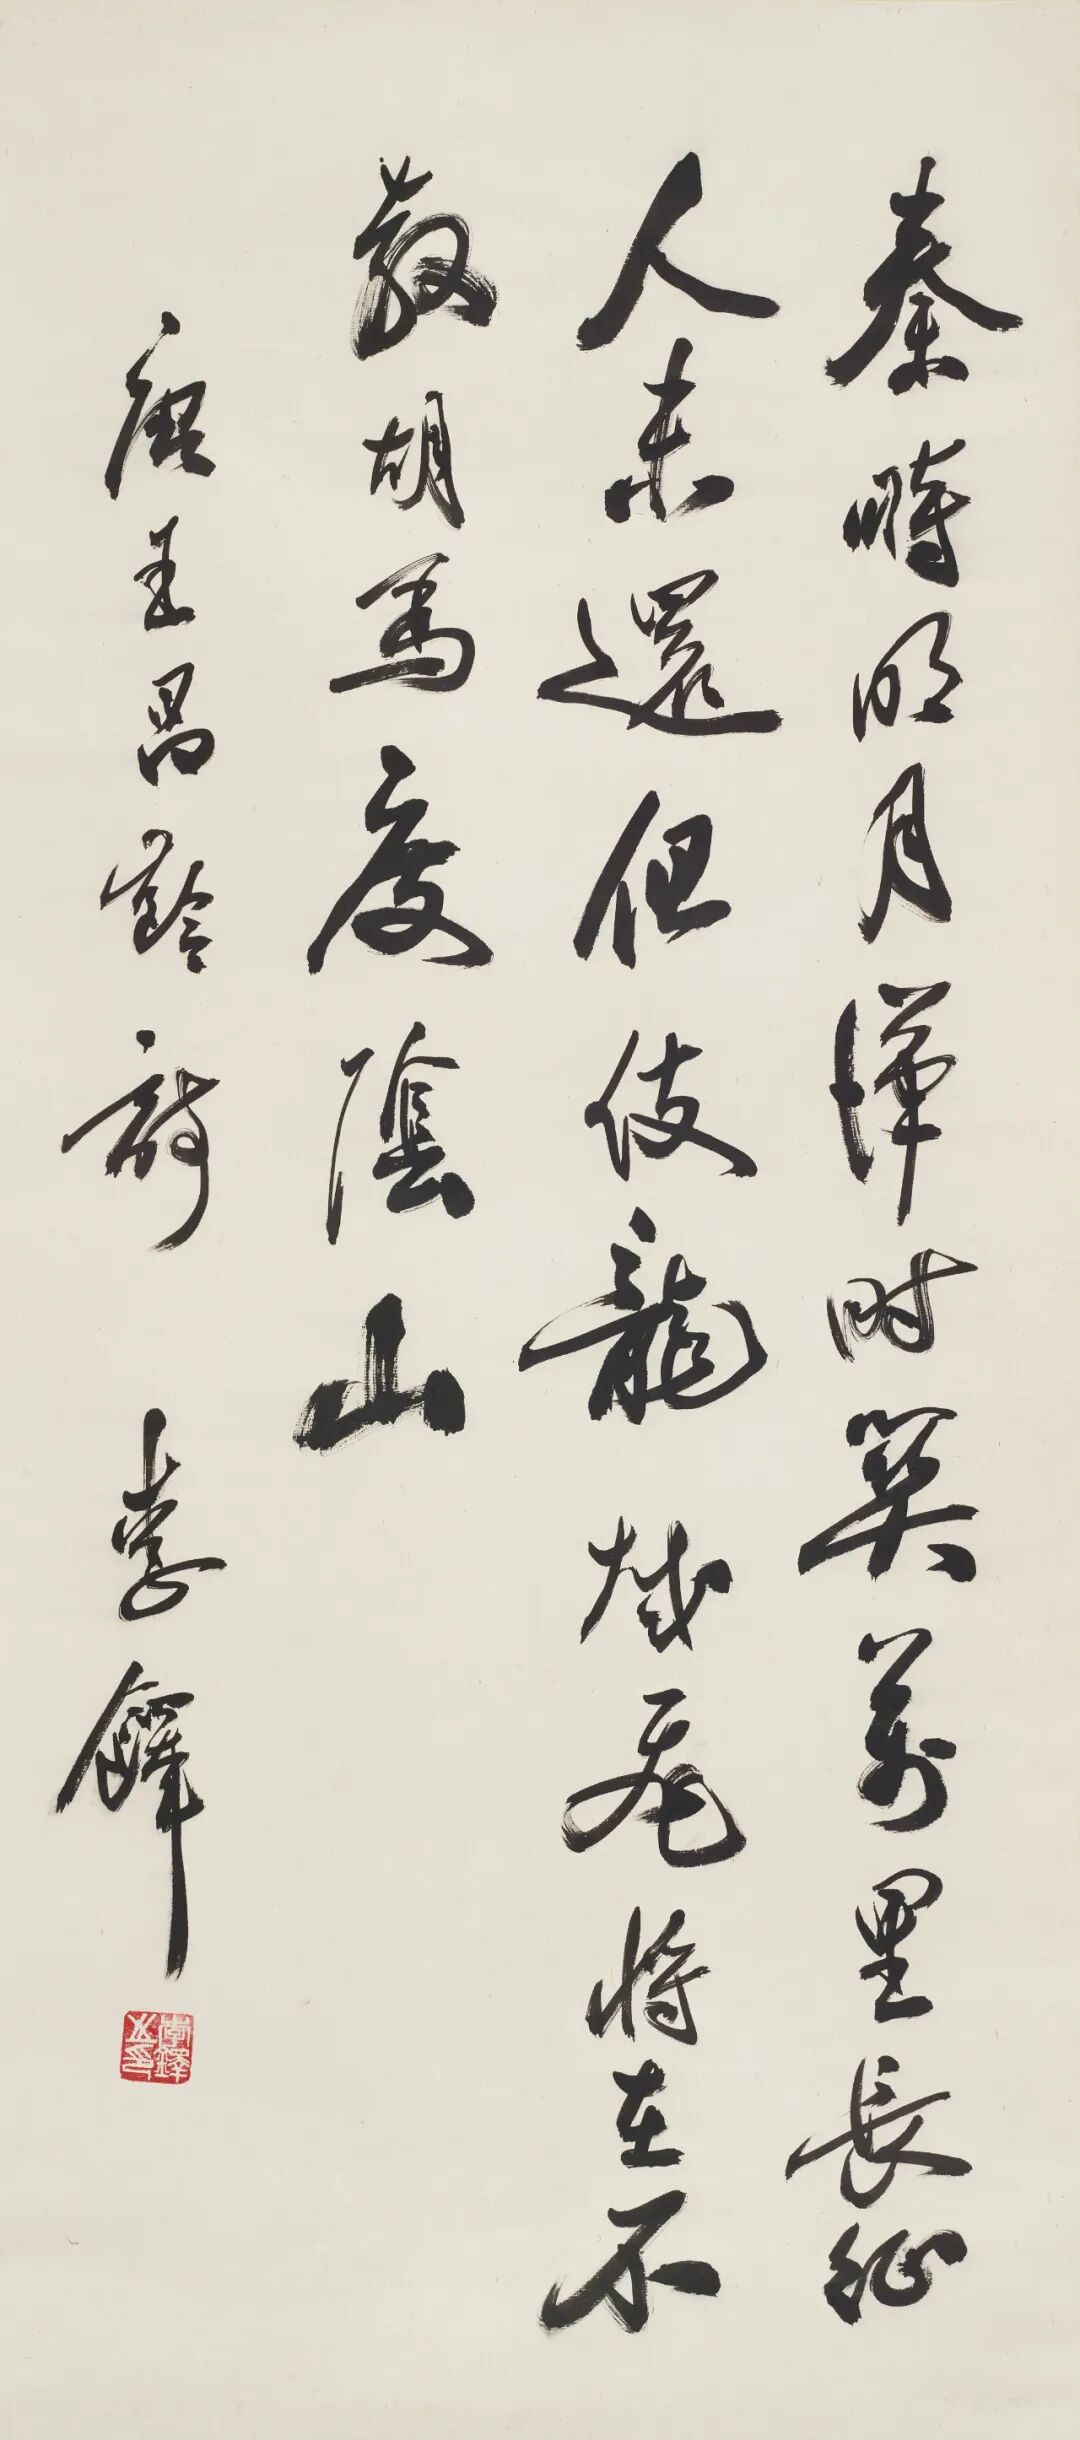 秦時明月漢时關萬里長征
人未還但使龍城飛將在不
教胡馬度陰山
唐王昌齡詩 李鐸
李鐸之印